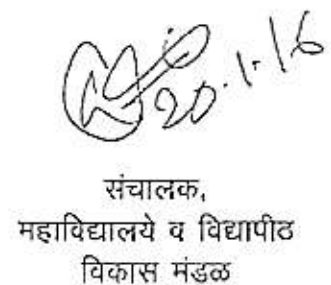 20.1.16
संचालक,
महाविद्यालये व विद्यापीठ
विकास मंडळ